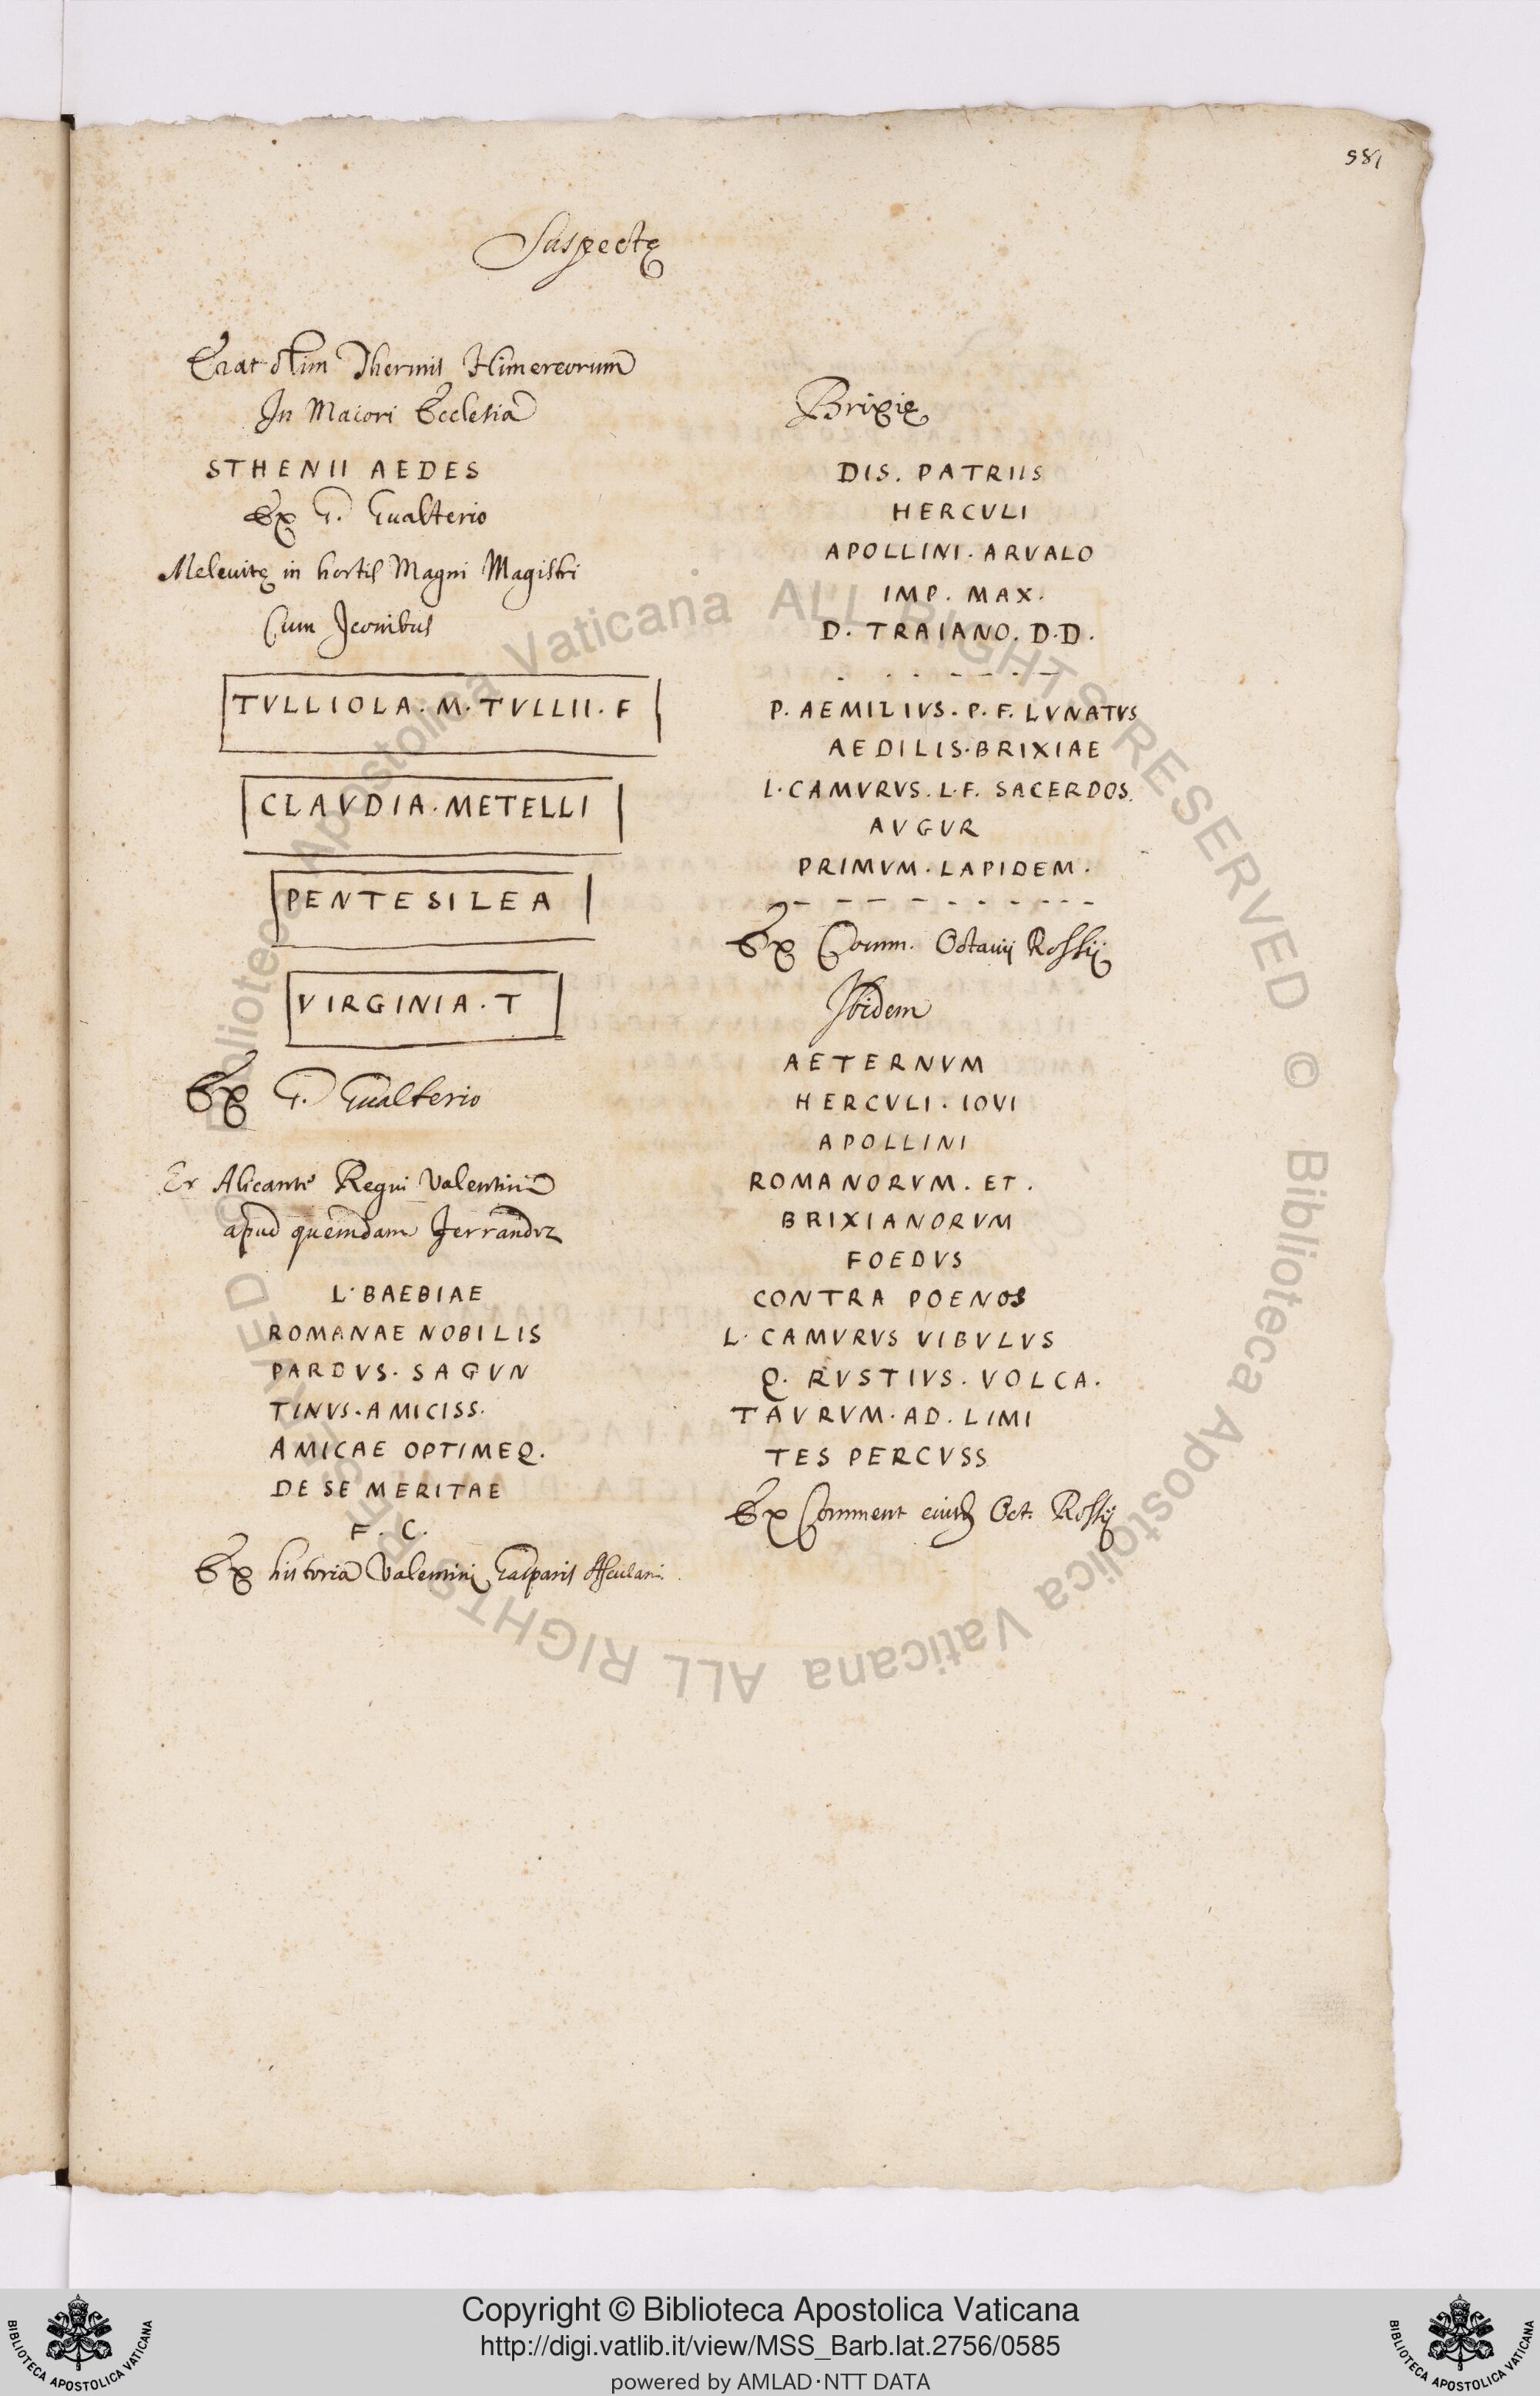 581
Suspectę
Erat olim Thermis Himereorum
In Maiori Ecclesia
STHENII AEDES
Ex G. Gualterio
Meleuitę in hortis Magni Magistri
Cum Iconibus
TVLLIOLA. M. TVLLII. F
CLAVDIA. METELLI
PENTESILEA
VIRGINIA. T
Ex G. Gualterio
Alicante Regni Valentini
apud quemdam Ferrandiz
L. BAEBIAE
ROMANAE NOBILIS
PARDVS. SAGVN
TINVS. AMICISS.
AMICAE OPTIMEQ.
DE SE MERITAE
F. C.
Ex historia Valentini Gasparis Asculani
Brixię
DIS. PATRIIS
HERCVLI
APOLLINI. ARVALO
IMP. MAX.
D. TRAIANO. D.D.
. . . - - - -
P. AEMILIVS. P. F. LVNATVS
AEDILIS. BRIXIAE
L. CAMVRVS. L. F. SACERDOS.
AVGVR
PRIMVM. LAPIDEM.
- - - - - - - - - -
Ex Comm. Octauij Rossij
Ibidem
AETERNVM
HERCVLI. IOVI
APOLLINI
ROMANORVM. ET.
BRIXIANORVM
FOEDVS
CONTRA POENOS
L. CAMVRVS VIBVLVS
Q. RVSTIVS. VOLCA.
TAVRVM. AD. LIMI
TES PERCVSS
Ex Comment eiusd Oct. Rossij
© Biblioteca Apostolica Vaticana ALL RIGHTS RESERVED © Biblioteca Apostolica Vaticana ALL RIGHTS RESERVED
Copyright © Biblioteca Apostolica Vaticana
http://digi.vatlib.it/view/MSS_Barb.lat.2756/0585
powered by AMLAD·NTT DATA
BIBLIOTECA APOSTOLICA VATICANA
BIBLIOTECA APOSTOLICA VATICANA